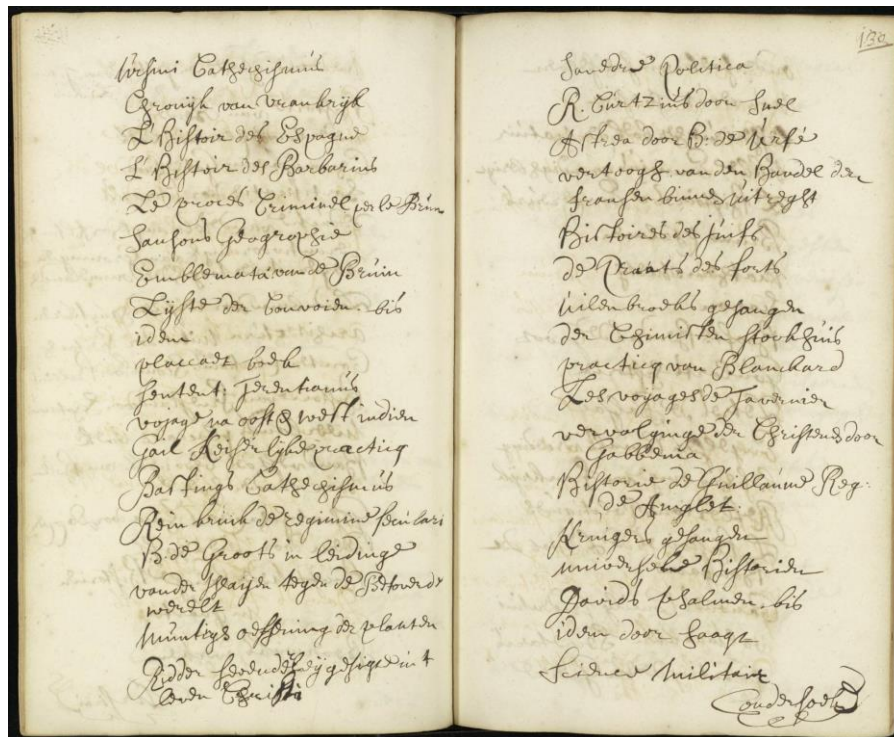 Ursini Cathechismus
Chronijk van Vrankrijk
L'Histoir des Espagne
L'Histoir des Barbarius
Le proces Criminel per le Brun
Sansons Geographie
Emblemata van de Bruin
Lijste der Convoien. bis
idem
placcaet boek
Sentent: Terentianus
vojage na oost & west indien
Gail Keiserlijke practicq
Bastings Cathechismus
Reinkink de regimine seculari
H: de Groots inleidinge
vander Waijen tegen de Betoverde
werelt
Muntigh oeffening der planten
Ridder int
leven Christi
130
Savedre Politica
R. Curtzius door Snel
Astrea door H: de Urfé
vertoogh van den Handel der
fransen binnen uitreght
Histoires des Juifs
de Praats des forts
uilenbroeks gesangen
der Chimisten stookhuis
practicq van Blanchard
Les voyages de Tavernier
vervolginge der Christenen door
Gabbema
Historie de Guillaume Reg:
de Anglet:
Krugers gesangen
universele Historien
Davids psalmen. bis
idem door haagt
Science Militair